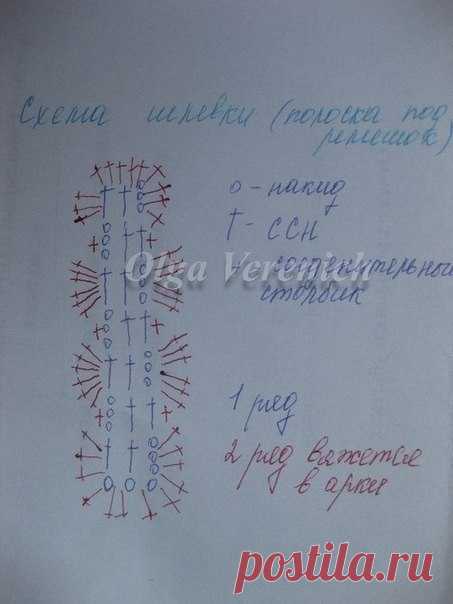 Схема шлевки (полоска под
ремешок)
о - накид
† - ССН
Olga Verenich
+ - соединительный
столбик
1 ряд
2 ряд вяжется
в арки
postila.ru